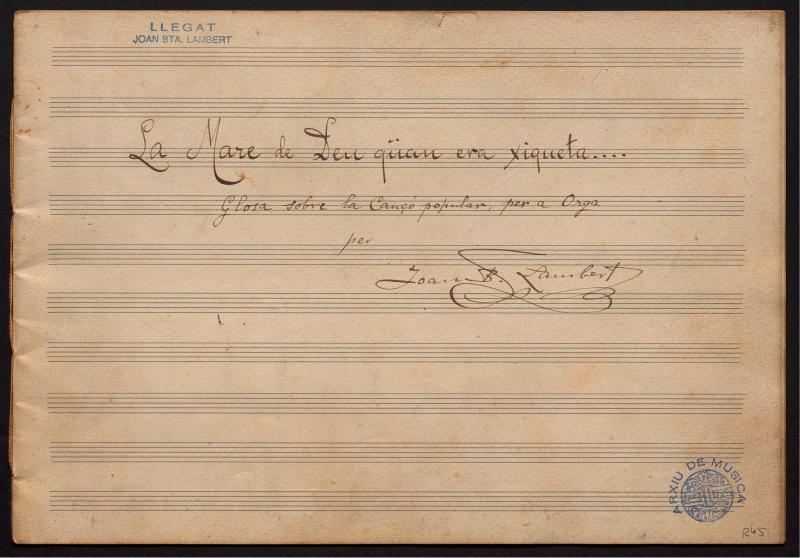 LLEGAT
JOAN BTA. LAMBERT
La Mare de Deu qüan era xiqueta....
Glosa sobre la Cançó popular, per a Orga
per
Joan B. Lambert
ARXIU DE MUSICA
R45